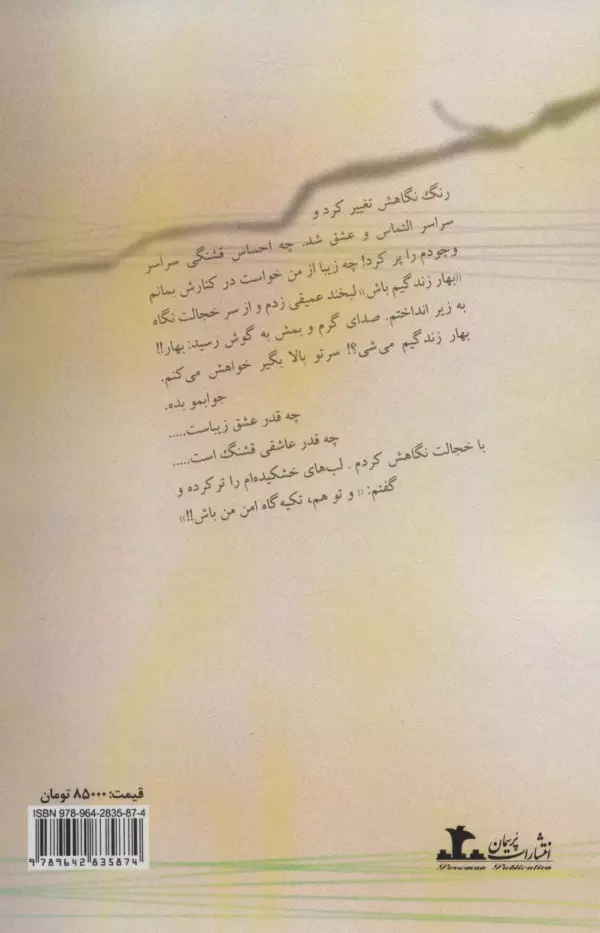 رنگ نگاهش تغییر کرد و
سراسر التماس و عشق شد. چه احساس قشنگی سراسر
وجودم را پر کرد! چه زیبا از من خواست در کنارش بمانم
«بهار زندگیم باش» لبخند عمیقی زدم و از سر خجالت نگاه
به زیر انداختم. صدای گرم و بمش به گوش رسید: بهار!!
بهار زندگیم می‌شی؟! سرتو بالا بگیر خواهش می‌کنم.
جوابمو بده.
چه قدر عشق زیباست.....
چه قدر عاشقی قشنگ است.....
با خجالت نگاهش کردم. لب‌های خشکیده‌ام را تر کرده و
گفتم: «و تو هم، تکیه‌گاه امن من باش!!»
قیمت: ۸۵۰۰۰ تومان
ISBN 978-964-2835-87-4
9789642835874
انتشارات پُرسمان
Porseman Publication